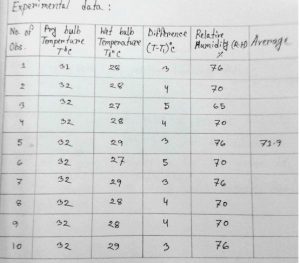 Experimental data :
No. of Obs. | Dry bulb Temperature T°c | Wet bulb Temperature T₁°c | Difference (T-T₁)°c | Relative Humidity (R.H) % | Average
1 | 31 | 28 | 3 | 76
2 | 32 | 28 | 4 | 70
3 | 32 | 27 | 5 | 65
4 | 32 | 28 | 4 | 70
5 | 32 | 29 | 3 | 76 | 71.9
6 | 32 | 27 | 5 | 70
7 | 32 | 29 | 3 | 76
8 | 32 | 28 | 4 | 70
9 | 32 | 28 | 4 | 70
10 | 32 | 29 | 3 | 76